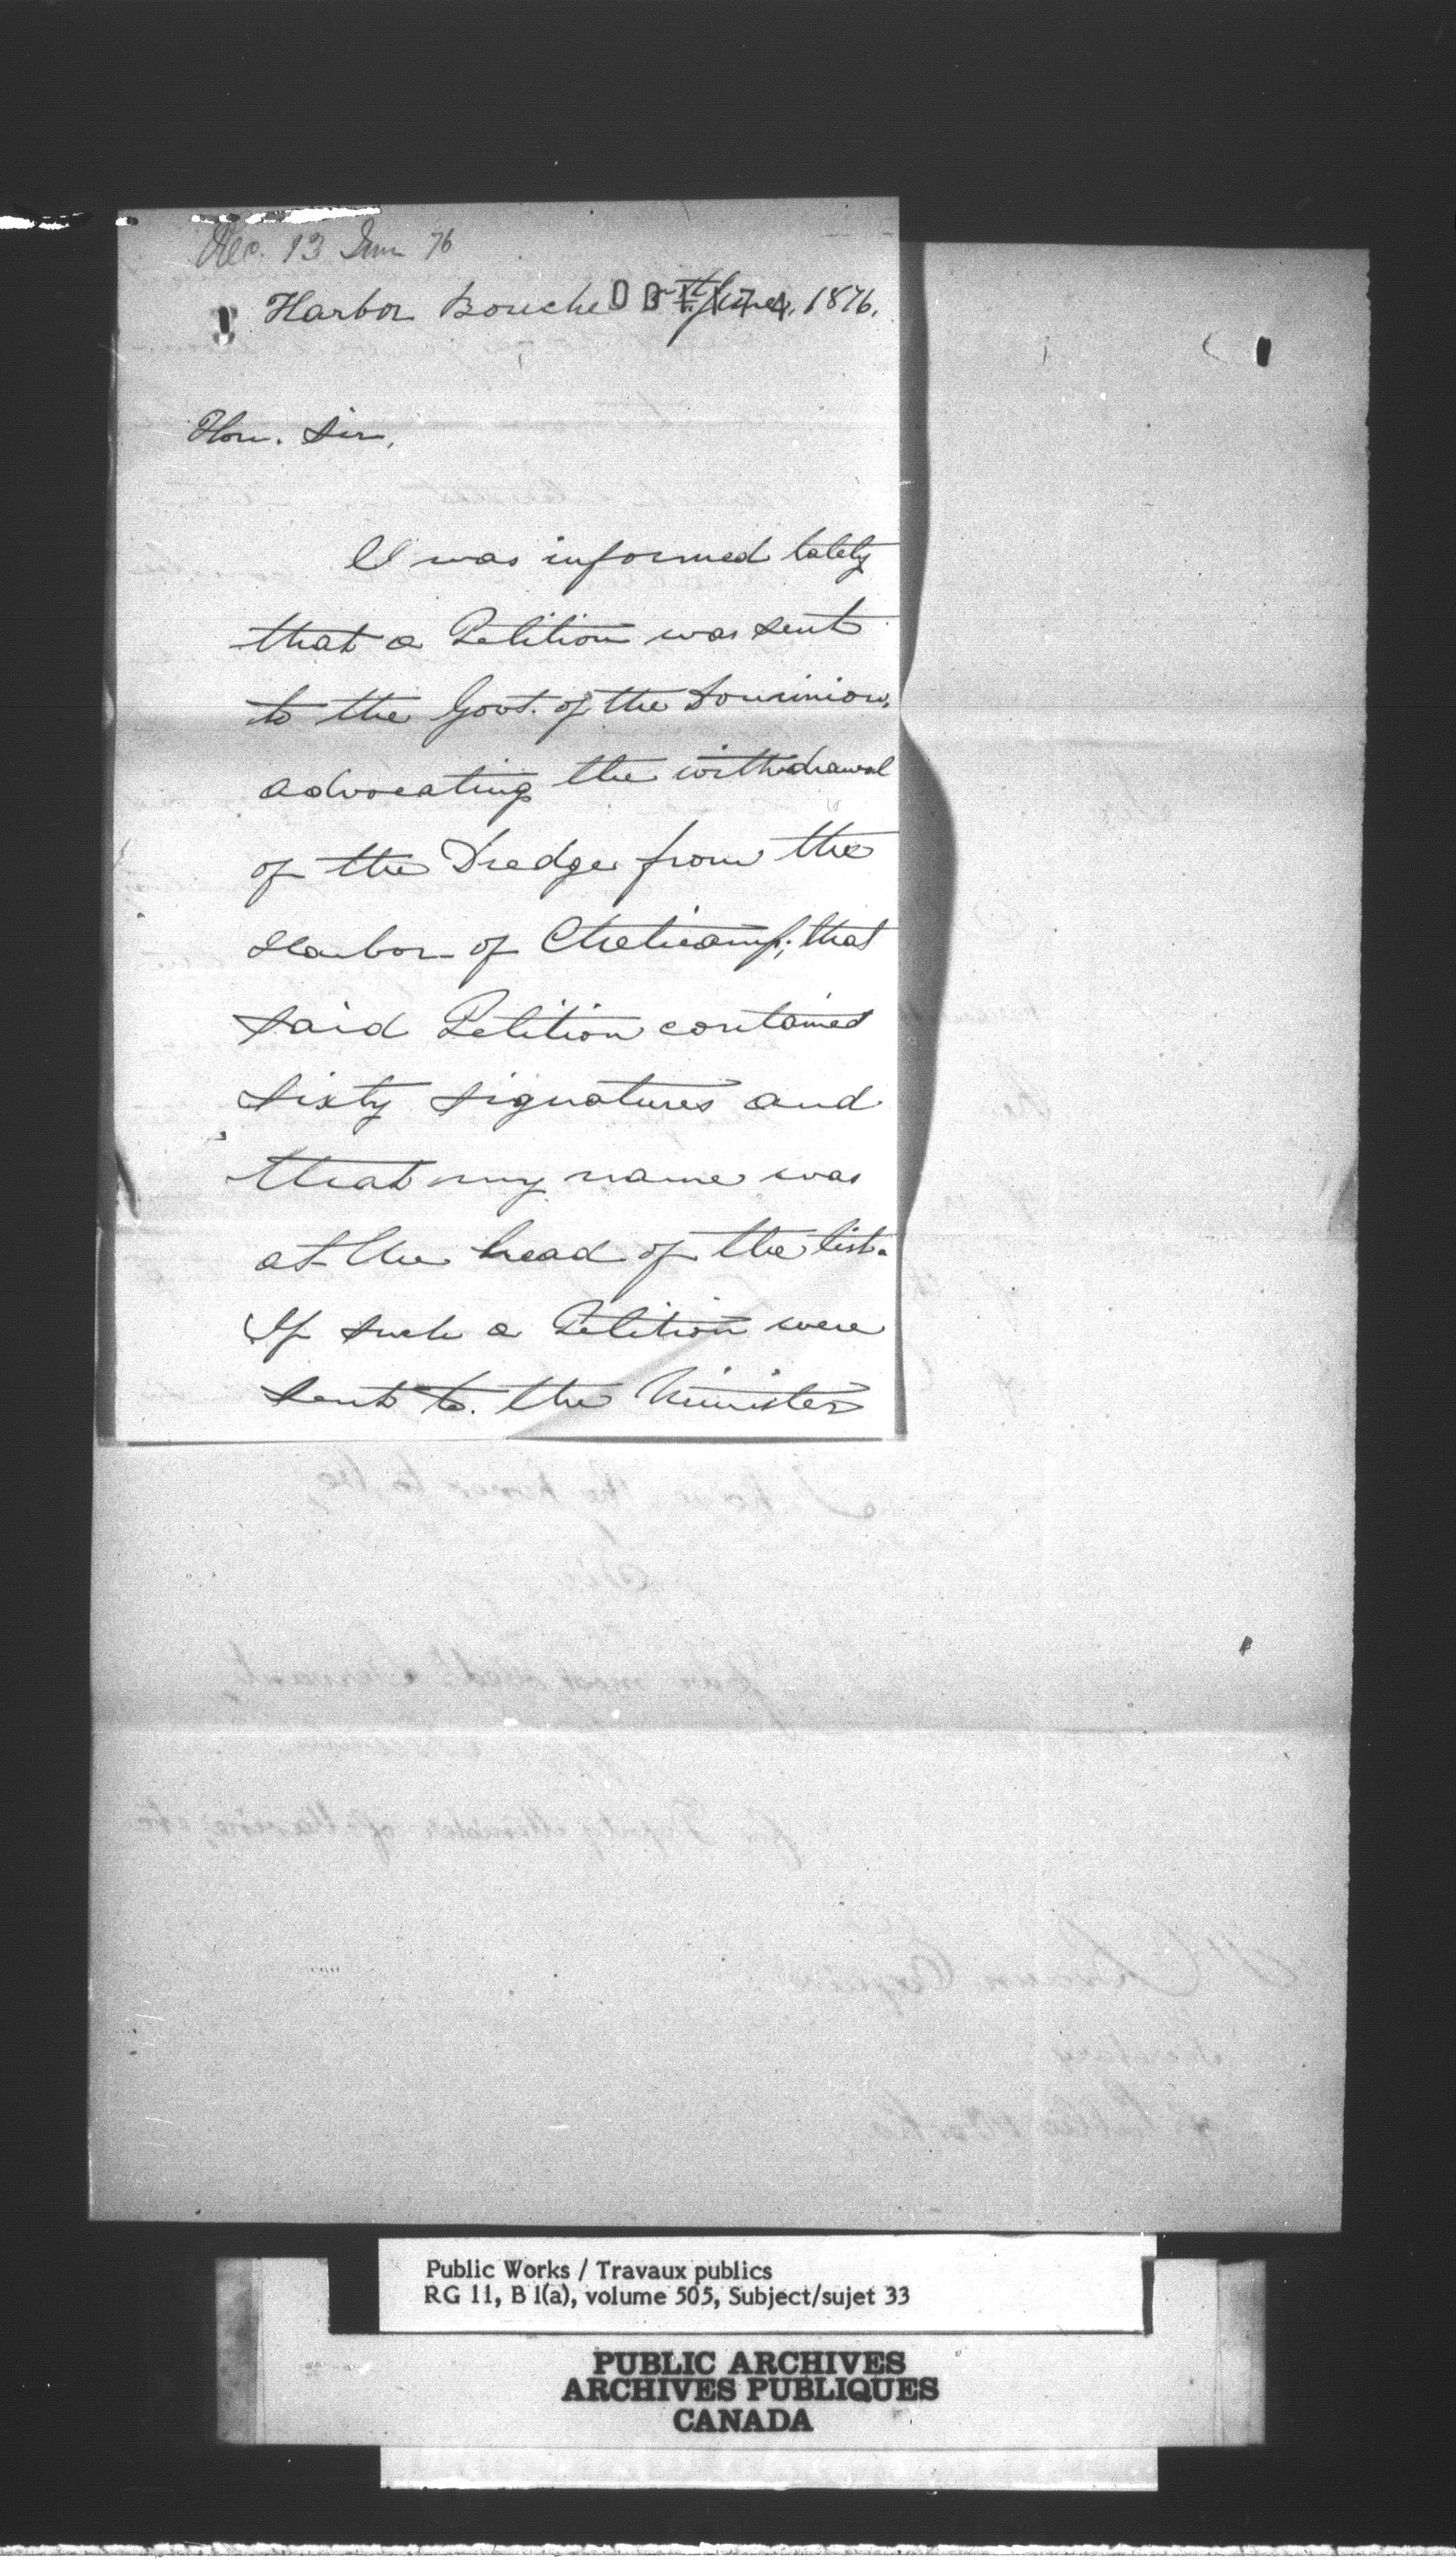 Rec. 13 June 76
Harbor Bouche June, 1876.
Hon. Sir,
I was informed lately
that a Petition was sent
to the Govt. of the Dominion,
advocating the withdrawal
of the Dredge from the
Harbor of Cheticamp; that
said Petition contained
sixty signatures and
that my name was
at the head of the list.
If such a Petition were
sent to the Minister
Public Works / Travaux publics
RG 11, B 1(a), volume 505, Subject/sujet 33
PUBLIC ARCHIVES
ARCHIVES PUBLIQUES
CANADA